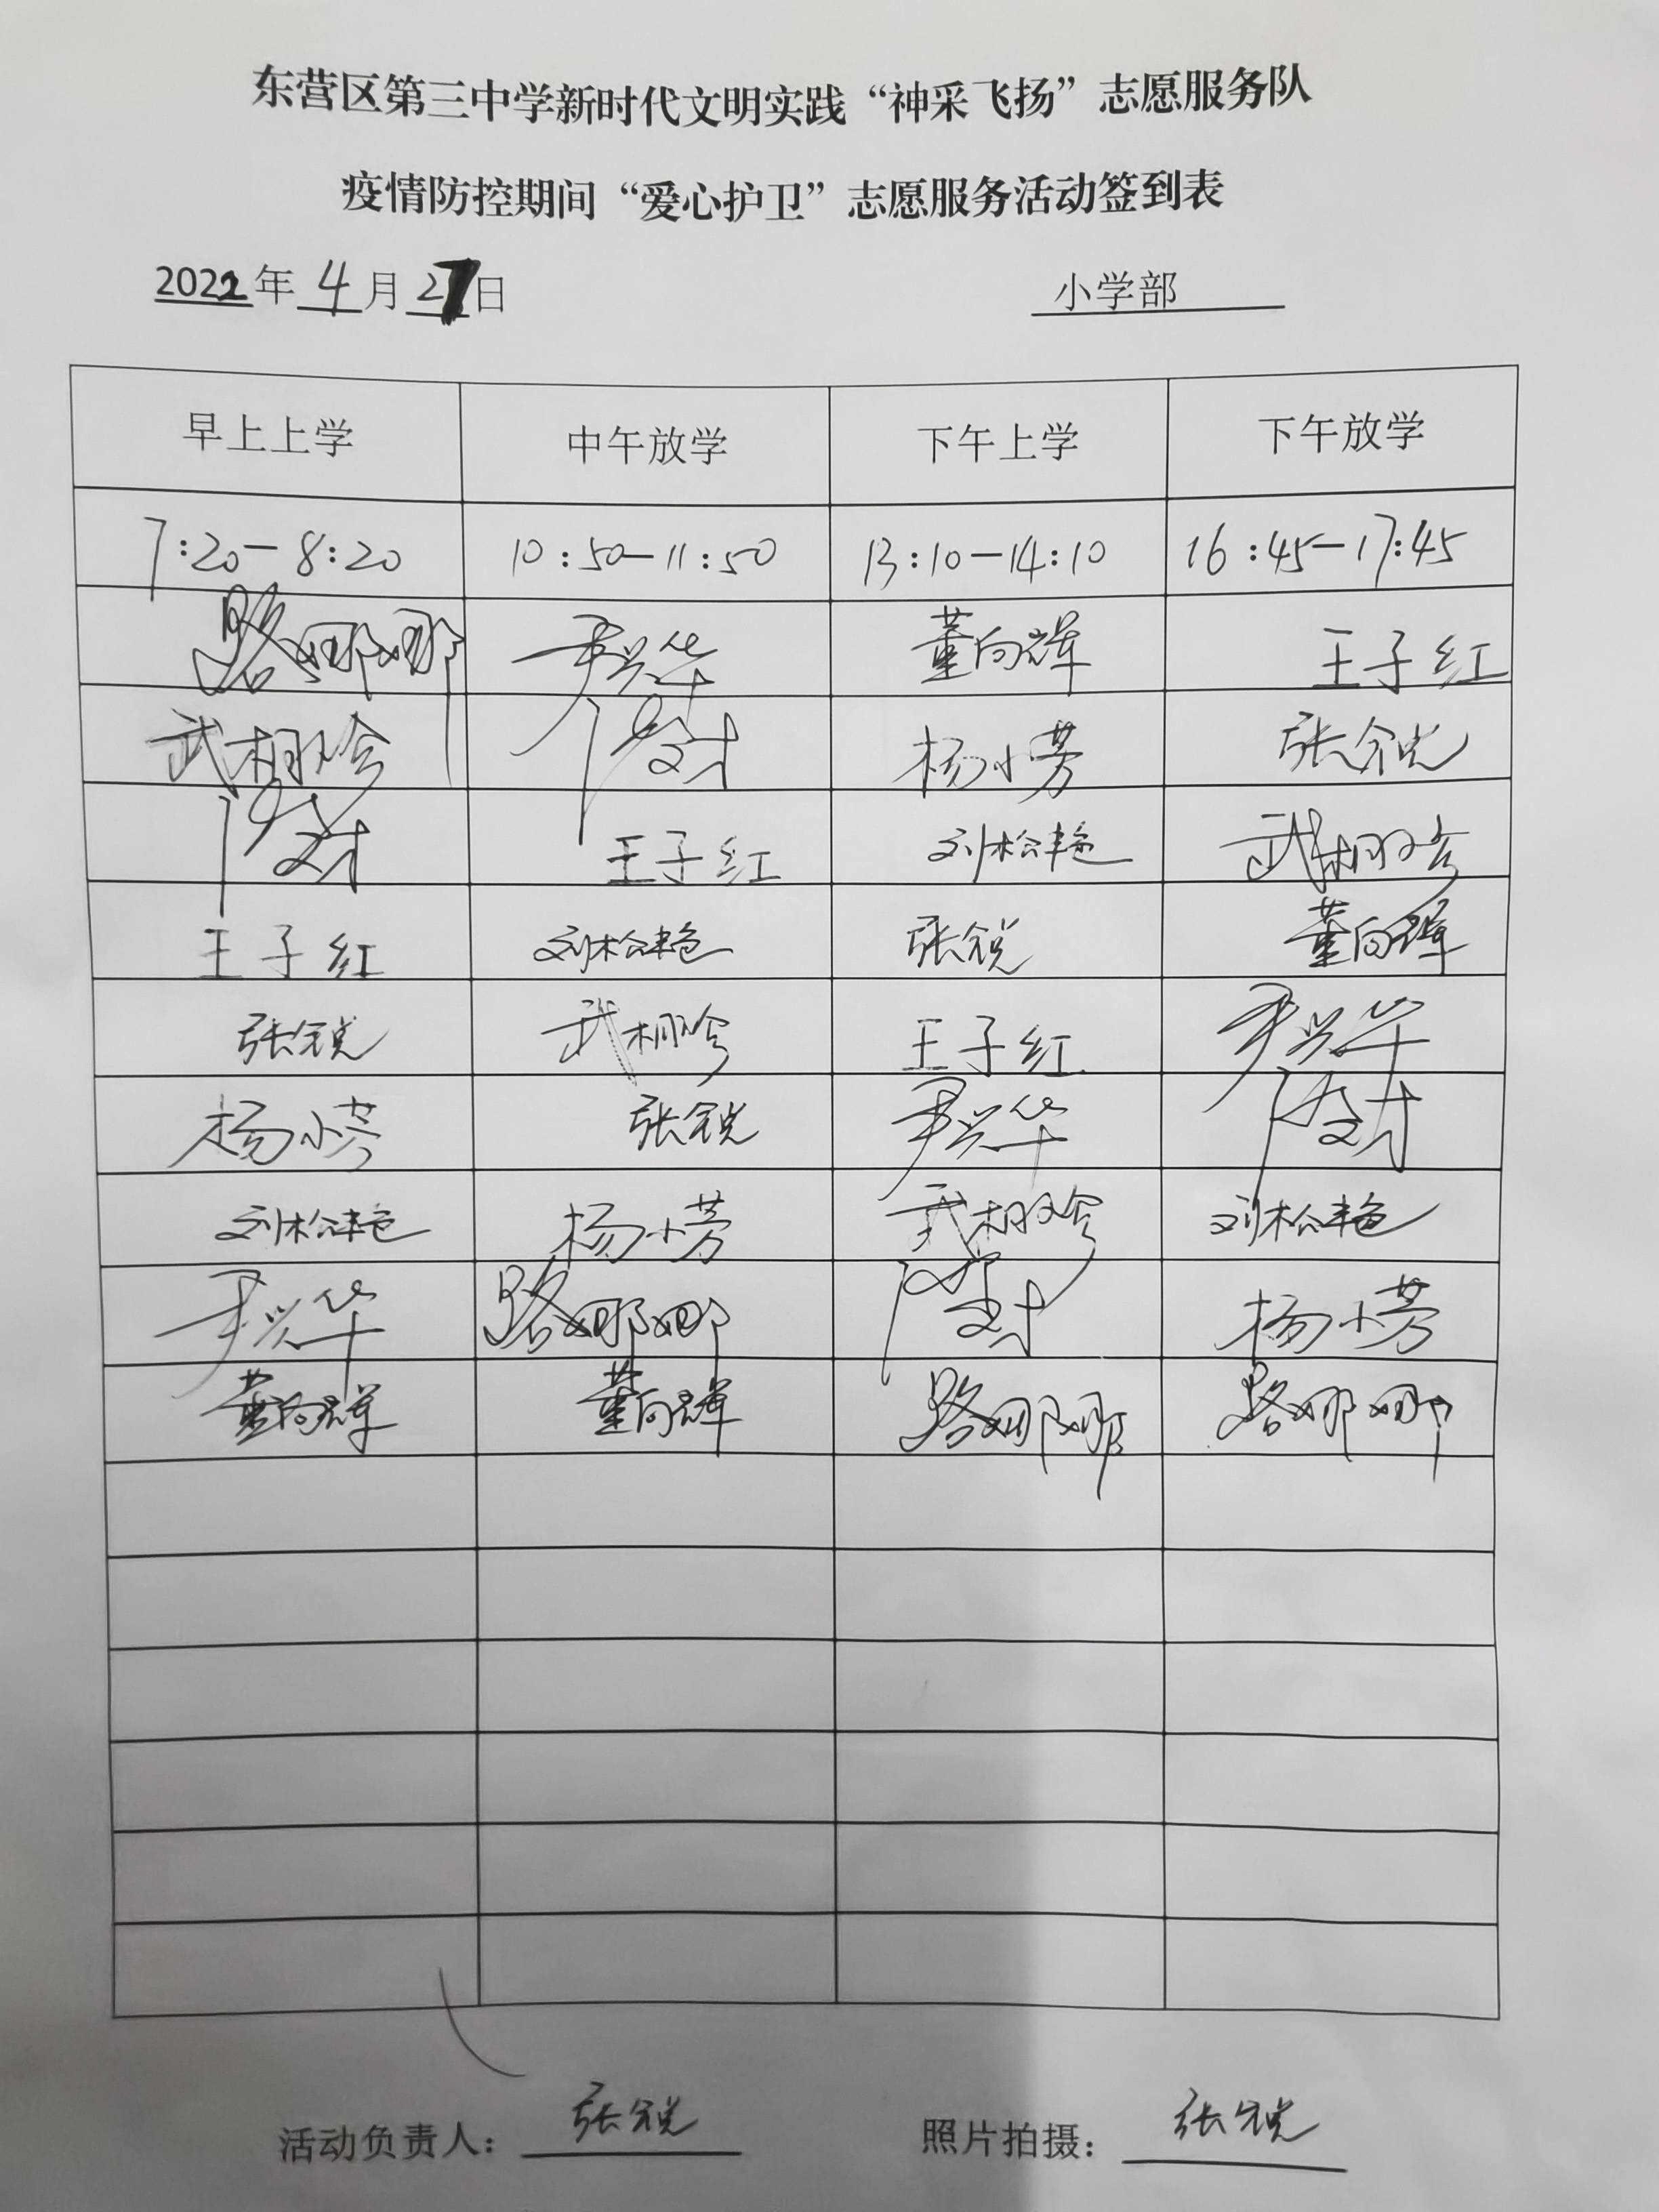 东营区第三中学新时代文明实践“神采飞扬”志愿服务队
疫情防控期间“爱心护卫”志愿服务活动签到表
2022年 4 月 27日 小学部
早上上学 中午放学 下午上学 下午放学
7:20—8:20 10:50—11:50 13:10—14:10 16:45—17:45
路娜娜 尹兴华 董向辉 王子红
杨小芳 张锐
王子红 刘松艳
王子红 刘松艳 张锐 董向辉
张锐 王子红 尹兴华
杨小芳 张锐 尹兴华
刘松艳 杨小芳 刘松艳
尹兴华 路娜娜 杨小芳
董向辉 董向辉 路娜娜 路娜娜
活动负责人：张锐 照片拍摄：张锐